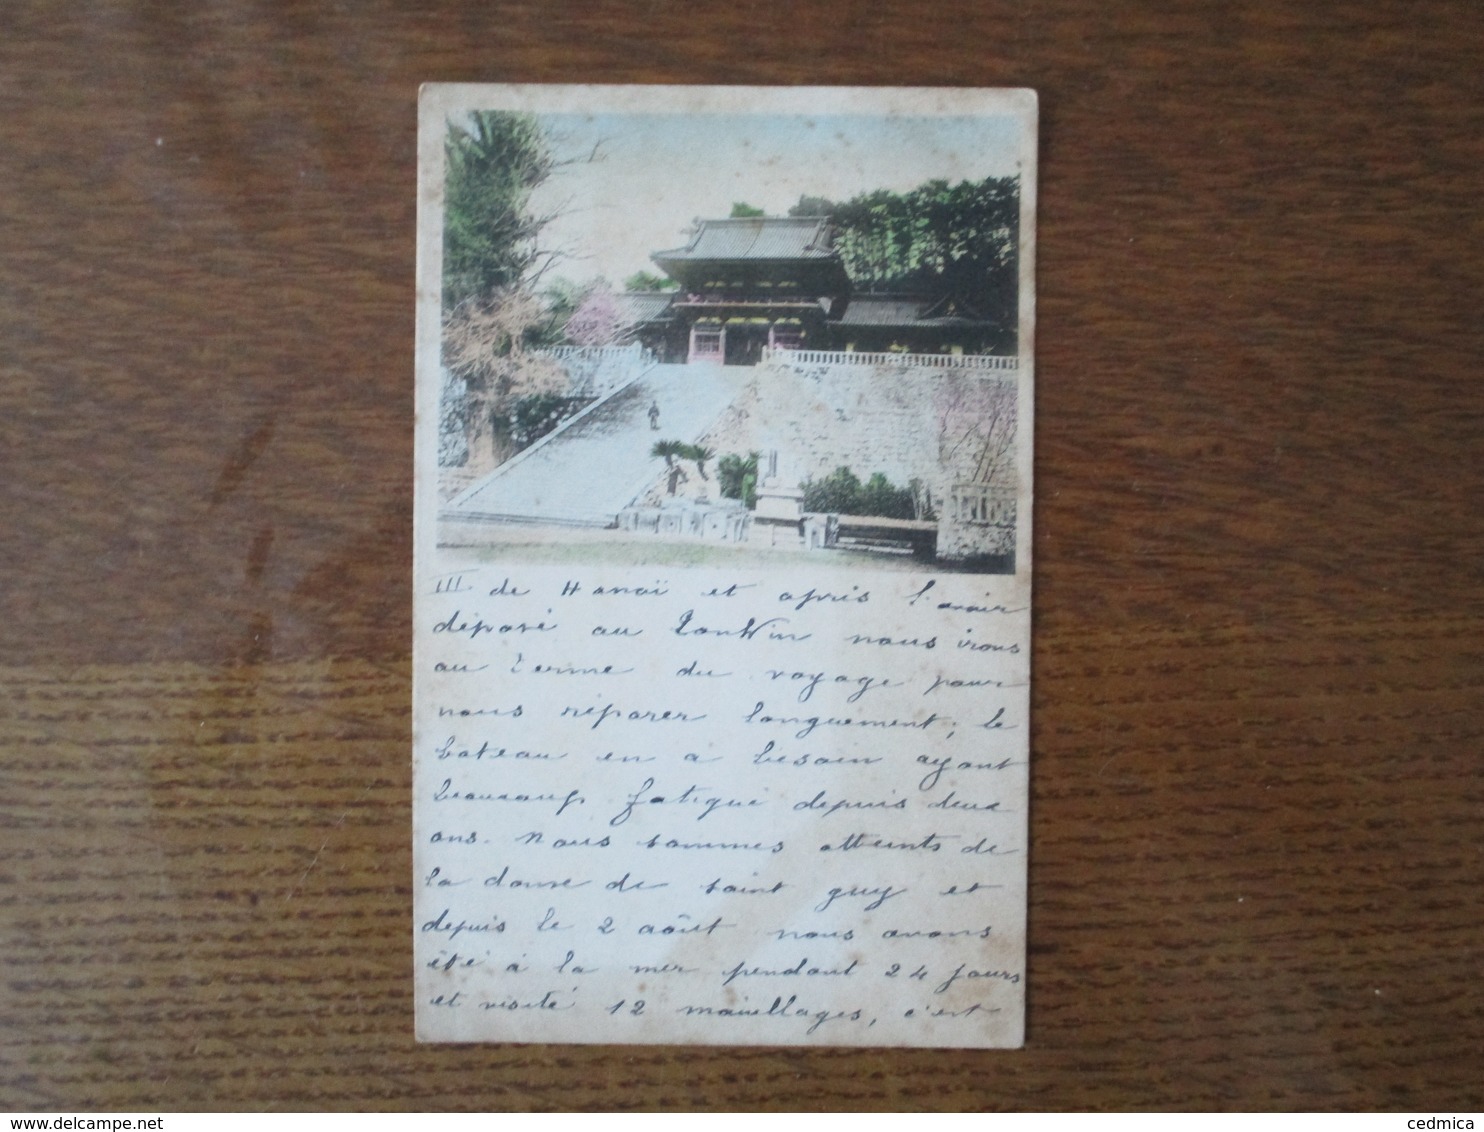 III de Hanoï et après l'avoir
déposé au Tonkin nous irons
au terme du voyage pour
nous réparer longuement; le
bateau en a besoin ayant
beaucoup fatigué depuis deux
ans. Nous sommes atteints de
la danse de saint guy et
depuis le 2 août nous avons
été à la mer pendant 24 jours
et visité 12 mouillages, c'est
cedmica